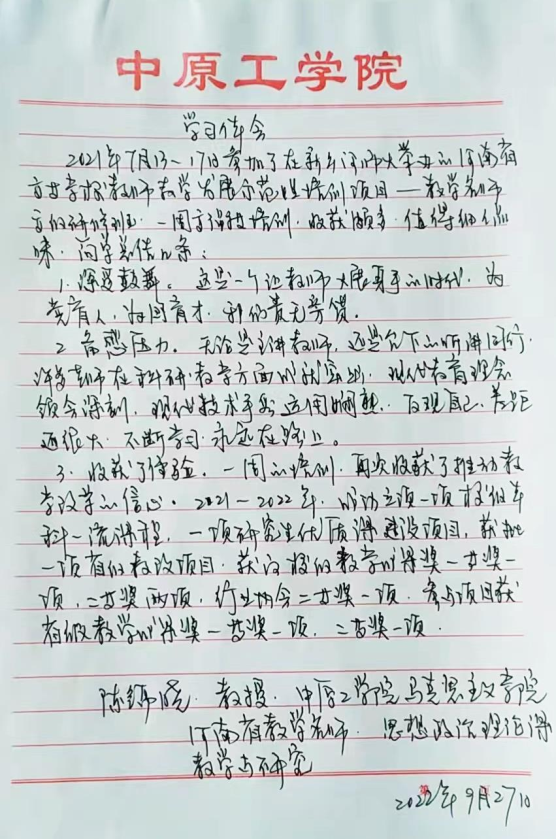 中原工学院
学习体会
2021年7月13~17日参加了在新乡河师大举办的河南省
高等学校教师教学发展示范性培训项目——教学名师
高级研修班. 一周高强度培训. 收获颇多. 值得细细品
味. 向学总结几条:
1. 深受鼓舞。这是一个让教师大展身手的时代. 为
党育人, 为国育才. 我们责无旁贷.
2. 备感压力. 无论是主讲教师, 还是台下的听讲同行.
许多老师在科研教学方面成就突出. 现代教育理念
领会深刻, 现代技术手段运用娴熟. 反观自己. 差距
还很大. 不断学习 永远在路上。
3. 收获了体验. 一周的培训. 再次收获了推动教
学改革的信心. 2021-2022年. 成功立项一项校级本
科一流课程, 一项研究生优质课建设项目, 获批
一项省级教改项目. 获得校级教学成果奖一等奖一
项, 二等奖两项, 行业协会二等奖一项. 参与项目获
省级教学成果奖一等奖一项. 二等奖一项.
晓. 教授. 中原工学院马克思主义学院
河南省教学名师. 思想政治理论课
教学与研究
2022年9月27日